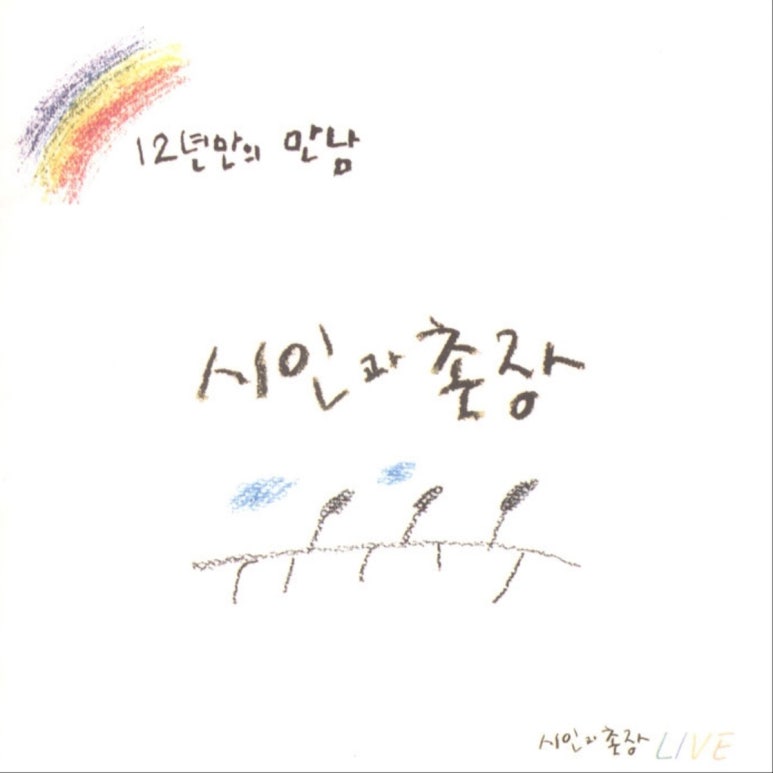 12년만의 만남
시인과 촌장
시인과 촌장 LIVE